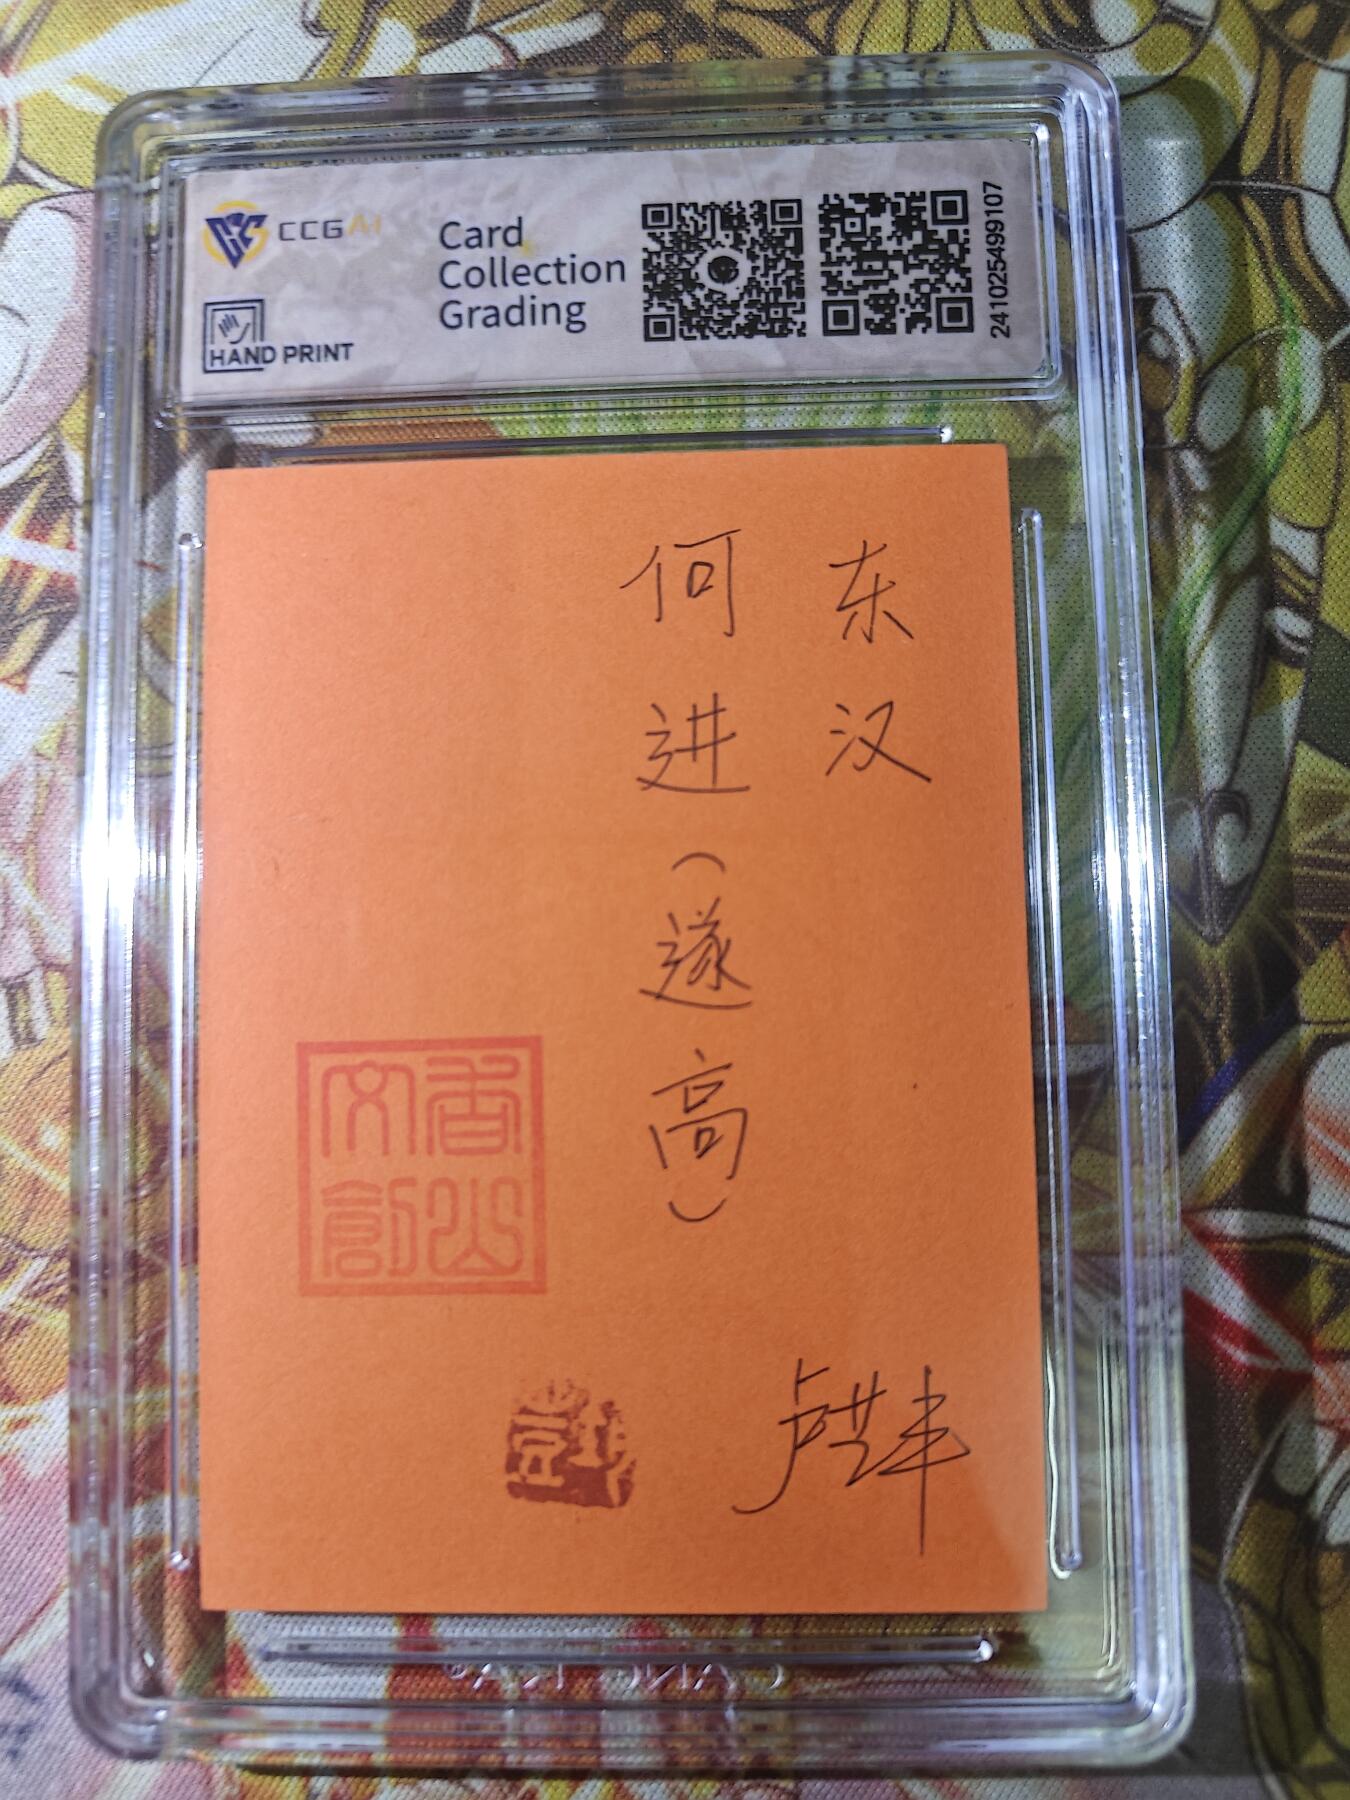 CCGAI
HAND PRINT
Card
Collection
Grading
241025499107
东汉
何进（遂高）
香山
文創
卢洪丰